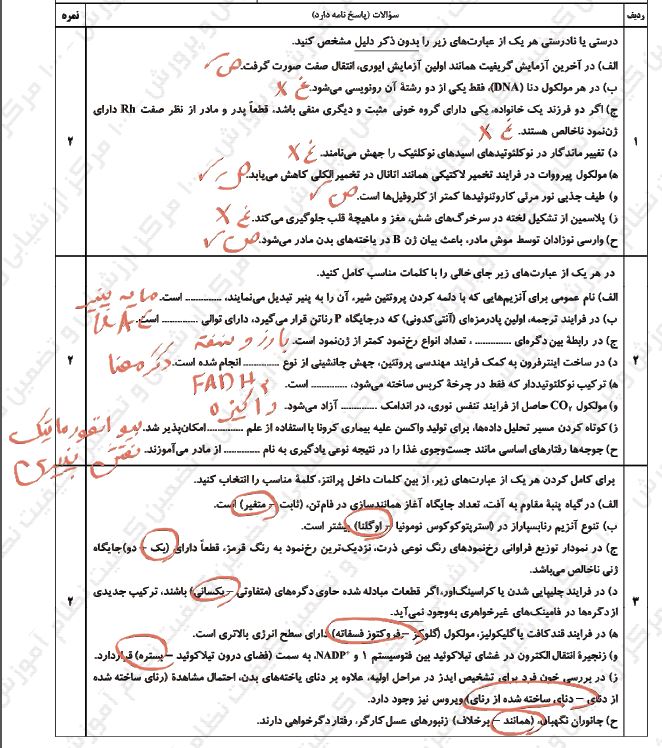 ردیف سؤالات (پاسخ نامه دارد) نمره
۱
درستی یا نادرستی هر یک از عبارت‌های زیر را بدون ذکر دلیل مشخص کنید.
الف) در آخرین آزمایش گریفیت همانند اولین آزمایش ایوری، انتقال صفت صورت گرفت. ص ✓
ب) در هر مولکول دنا (DNA)، فقط یکی از دو رشتهٔ آن رونویسی می‌شود. غ ✗
ج) اگر دو فرزند یک خانواده، یکی دارای گروه خونی مثبت و دیگری منفی باشد، قطعاً پدر و مادر از نظر صفت Rh دارای
ژن‌نمود ناخالص هستند. غ ✗
۲
د) تغییر ماندگار در نوکلئوتیدهای اسیدهای نوکلئیک را جهش می‌نامند. غ ✗
ه) مولکول پیرووات در فرایند تخمیر لاکتیکی همانند اتانال در تخمیر الکلی کاهش می‌یابد. ص ✓
و) طیف جذبی نور مرئی کاروتنوئیدها کمتر از کلروفیل‌ها است. ص ✓
ز) پلاسمین از تشکیل لخته در سرخرگ‌های شش، مغز و ماهیچهٔ قلب جلوگیری می‌کند. غ ✗
ح) وارسی نوزادان توسط موش مادر، باعث بیان ژن B در یاخته‌های بدن مادر می‌شود. ص ✓
۲
در هر یک از عبارت‌های زیر جای خالی را با کلمات مناسب کامل کنید.
الف) نام عمومی برای آنزیم‌هایی که با دلمه کردن پروتئین شیر، آن را به پنیر تبدیل می‌نمایند، ............ است. مایه پنیر
ب) در فرایند ترجمه، اولین پادرمزه‌ای (آنتی‌کدونی) که درجایگاه P رناتن قرار می‌گیرد، دارای توالی ............ است. UAC
ج) در رابطهٔ بین دگره‌ای ............ ، تعداد انواع رخ‌نمود کمتر از ژن‌نمود است. بارز و نهفته
۲
د) در ساخت اینترفرون به کمک فرایند مهندسی پروتئین، جهش جانشینی از نوع ............ انجام شده است. دگرمعنا
ه) ترکیب نوکلئوتیددار که فقط در چرخهٔ کربس ساخته می‌شود، ............ است. FADH۲
و) مولکول CO۲ حاصل از فرایند تنفس نوری، در اندامک ............ آزاد می‌شود. راکیزه
ز) کوتاه کردن مسیر تحلیل داده‌ها، برای تولید واکسن علیه بیماری کرونا با استفاده از علم ............ امکان‌پذیر شد. بیوانفورماتیک
ح) جوجه‌ها رفتارهای اساسی مانند جست‌وجوی غذا را در نتیجه نوعی یادگیری به نام ............ از مادر می‌آموزند. نقش پذیری
۳
برای کامل کردن هر یک از عبارت‌های زیر، از بین کلمات داخل پرانتز، کلمهٔ مناسب را انتخاب کنید.
الف) در گیاه پنبهٔ مقاوم به آفت، تعداد جایگاه آغاز همانندسازی در فام‌تن، (ثابت – متغیر) است.
ب) تنوع آنزیم رنابسپاراز در (استرپتوکوکوس نومونیا – اوگلنا) بیشتر است.
ج) در نمودار توزیع فراوانی رخ‌نمودهای رنگ نوعی ذرت، نزدیک‌ترین رخ‌نمود به رنگ قرمز، قطعاً دارای (یک – دو) جایگاه
ژنی ناخالص می‌باشد.
۲
د) در فرایند چلیپایی شدن یا کراسینگ‌اور، اگر قطعات مبادله شده حاوی دگره‌های (متفاوتی – یکسانی) باشند، ترکیب جدیدی
از دگره‌ها در فامینک‌های غیرخواهری به‌وجود نمی‌آید.
ه) در فرایند قندکافت یا گلیکولیز، مولکول (گلوکز – فروکتوز فسفاته) دارای سطح انرژی بالاتری است.
و) زنجیرهٔ انتقال الکترون در غشای تیلاکوئید بین فتوسیستم ۱ و NADP⁺، به سمت (فضای درون تیلاکوئید – بستره) قراردارد.
ز) در بررسی خون فرد برای تشخیص ایدز در مراحل اولیه، علاوه بر دنای یاخته‌های بدن، احتمال مشاهدهٔ (رنای ساخته شده
از دنای – دنای ساخته شده از رنای) ویروس نیز وجود دارد.
ح) جانوران نگهبان، (همانند – برخلاف) زنبورهای عسل کارگر، رفتار دگرخواهی دارند.